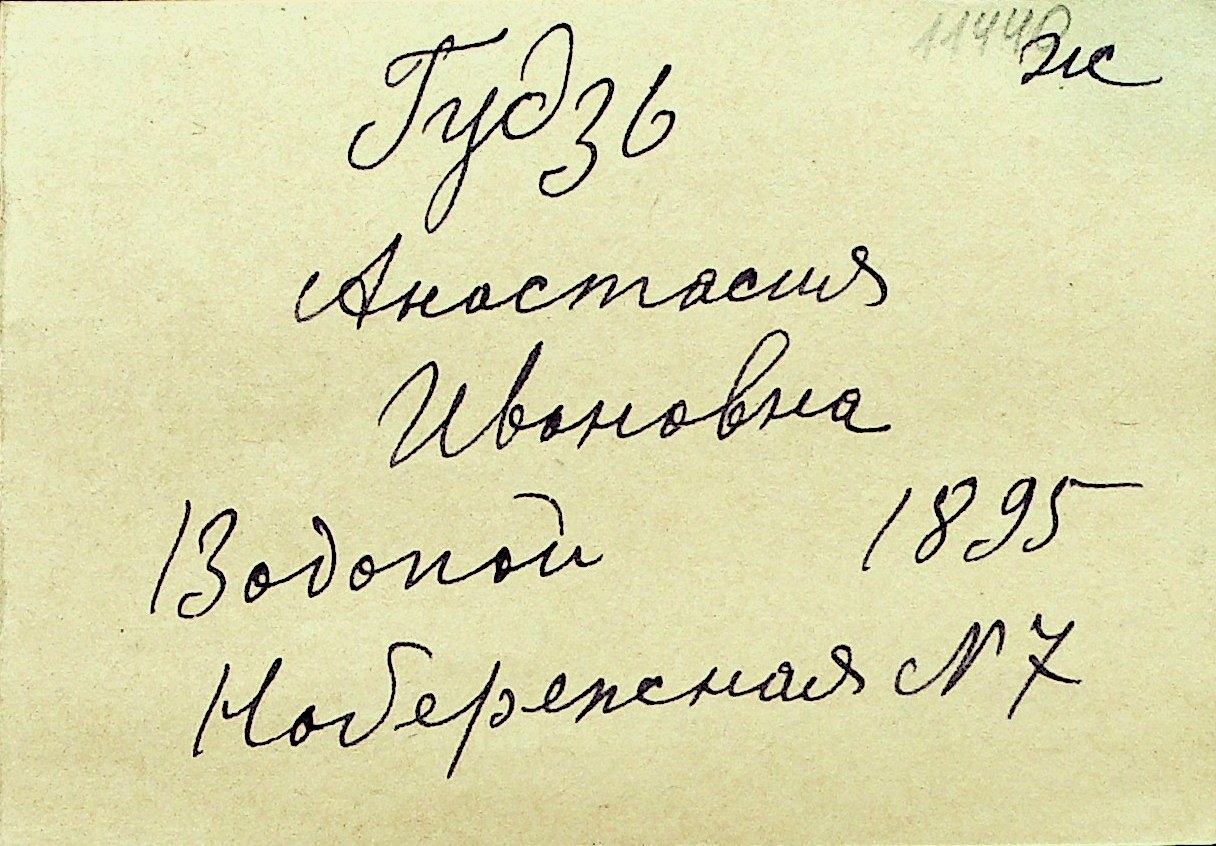 ж
Гудзь
Анастасия
Ивановна
Водопой 1895
Набережная N 7